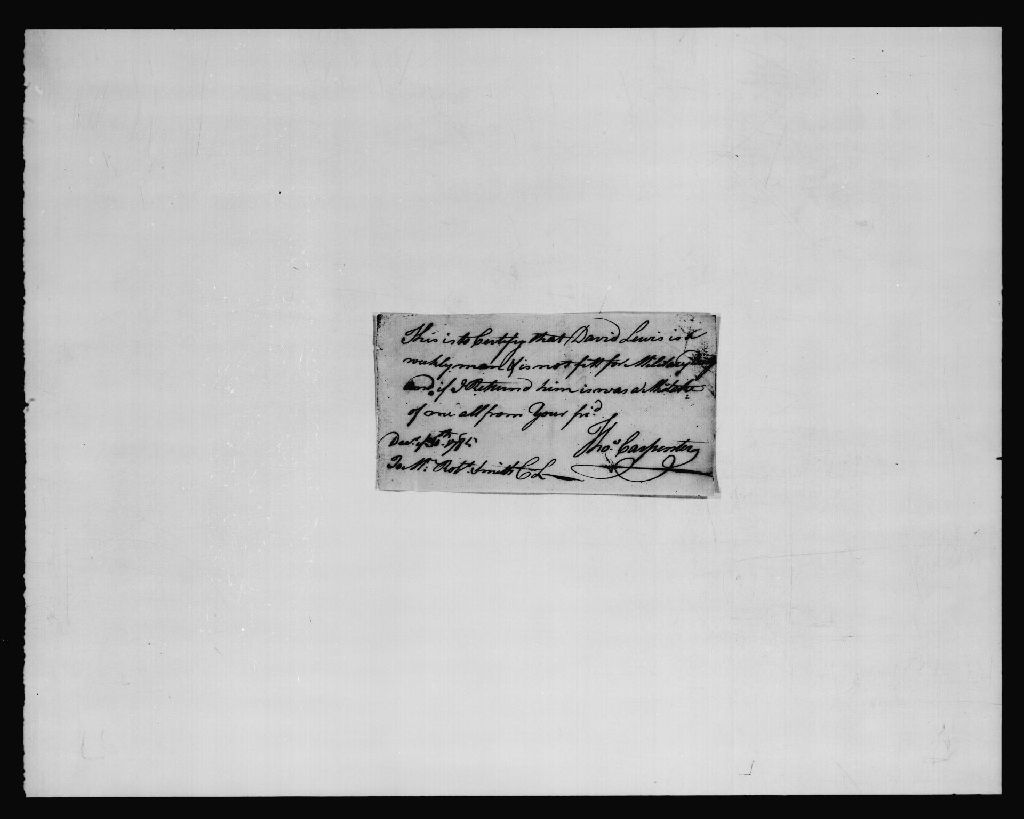 This is to Certify that David Lewis is a
weakly man & is not fitt for Military Duty
and if I Returnd him is was a Mistake
of me all from Your fri.d
Tho.s Carpenter
Dec.r 1785
To Mr. Rob.t Smith C L